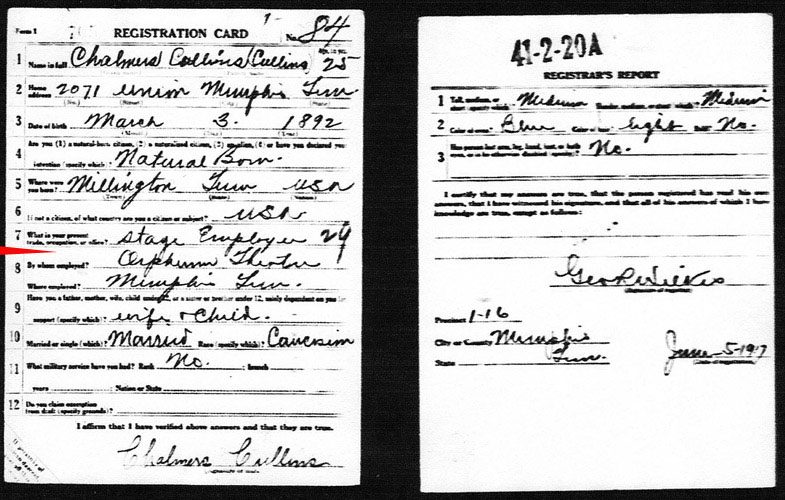 Form 1
REGISTRATION CARD No. 84
1 Name in full Chalmers Collins (Cullins) Age, in yrs. 25
2 Home address 2071 Union Memphis Tenn
(No.) (Street) (City) (State)
3 Date of birth March 3 1892
(Month) (Day) (Year)
4 Are you (1) a natural-born citizen, (2) a naturalized citizen, (3) an alien, (4) or have you declared your
intention (specify which)? Natural Born.
5 Where were you born? Millington Tenn USA
(Town) (State) (Nation)
6 If not a citizen, of what country are you a citizen or subject? USA
7 What is your present trade, occupation, or office? Stage Employee 24
8 By whom employed? Orpheum Theatre
Where employed? Memphis Tenn.
9 Have you a father, mother, wife, child under 12, or a sister or brother under 12, solely dependent on you for
support (specify which)? wife & child.
10 Married or single (which)? Married Race (specify which)? Caucasian
11 What military service have you had? Rank No. ; branch
years ; Nation or State
12 Do you claim exemption from draft (specify grounds)?
I affirm that I have verified above answers and that they are true.
Chalmers Cullins
(Signature or mark)
41-2-20A
REGISTRAR'S REPORT
1 Tall, medium, or short (specify which)? Medium Slender, medium, or stout (which)? Medium
2 Color of eyes? Blue Color of hair? Light Bald? No.
3 Has person lost arm, leg, hand, foot, or both eyes, or is he otherwise disabled (specify)? No.
I certify that my answers are true, that the person registered has read his own
answers, that I have witnessed his signature, and that all of his answers of which I have
knowledge are true, except as follows:
Geo R Wilkes
(Signature of registrar)
Precinct 1-16
City or County Memphis
State Tenn.
June-5-1917
(Date of registration)